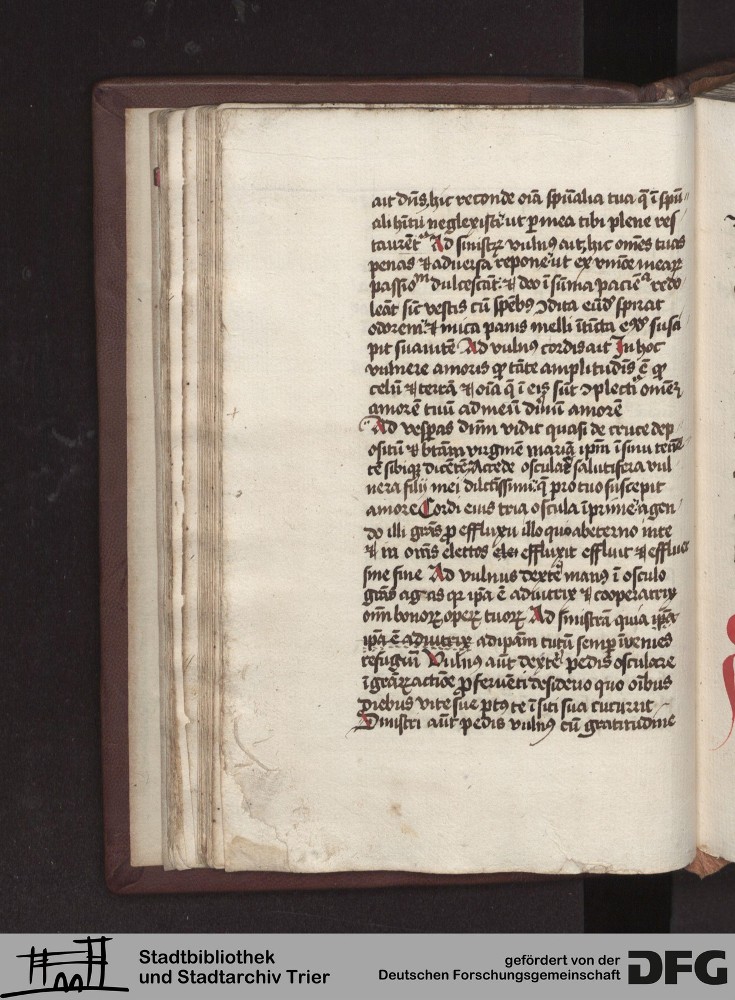 ait dn̄s hic reconde oīa spūalia tua q̄ ī spūa
ali hītū neglexisti ut ꝑ mea tibi plene res
taurēt Ad sinistrꝝ vulnꝰ ait hic om̄es tuas
penas et aduersa repone ut ex vnione mearꝝ
passionū dulcescāt et deo ī sum̄a paciēcia redo
leāt sic̄ vestis cū spēbꝫ ꝯdita eūdē spirat
odorem et mica panis melli ītīcta eiꝰdē susci
pit suauitatē Ad vulnꝰ cordis ait In hoc
vulnere amoris qđ tāte amplitudīs ē qđ
celū et terrā et oīa q̄ ī eis sūt ꝯplectit̄ om̄em
amorē tuū ad meū diuinū amorē
Ad vesꝑas dn̄m vidit quasi de cruce dep
ositū et btām virginē mariā ipm̄ ī sinu tenē
tē sibiqꝫ dicētē Accede osculare salutifera vul
nera filii mei dilctissimi q̄ pro tuo suscepit
amore Cordi eius tria oscula īprime agen
do illi grās ꝓ effluxu illo quo ab eterno in te
et in om̄s electos ele effluxit effluit et effluet
sine fine Ad vulnus dextre manꝰ ī osculo
grās agas qꝛ ipā ē adiutrix et cooperatrix
om̄ bonorꝝ operꝝ tuorꝝ Ad sinistram quia ipā
ipā ē adiutrix ad ipām tutū semꝑ īvenies
refugiū Vulnꝰ aūt dextri pedis osculare
ī grārꝝ actiōe ꝓ feruēti desiderio quo oībus
diebus vite sue ꝑtꝰ te ī siti sua cucurrit
Sinistri aūt pedis vulnꝰ cū gratitudine
Stadtbibliothek
und Stadtarchiv Trier
gefördert von der
Deutschen Forschungsgemeinschaft
DFG